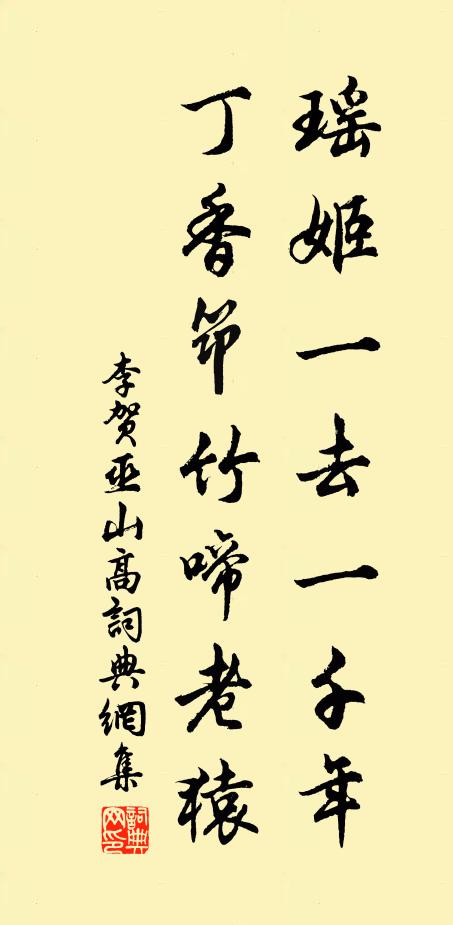 瑶姬一去一千年
丁香筇竹啼老猿
李贺巫山高詞典網集
詞典网印